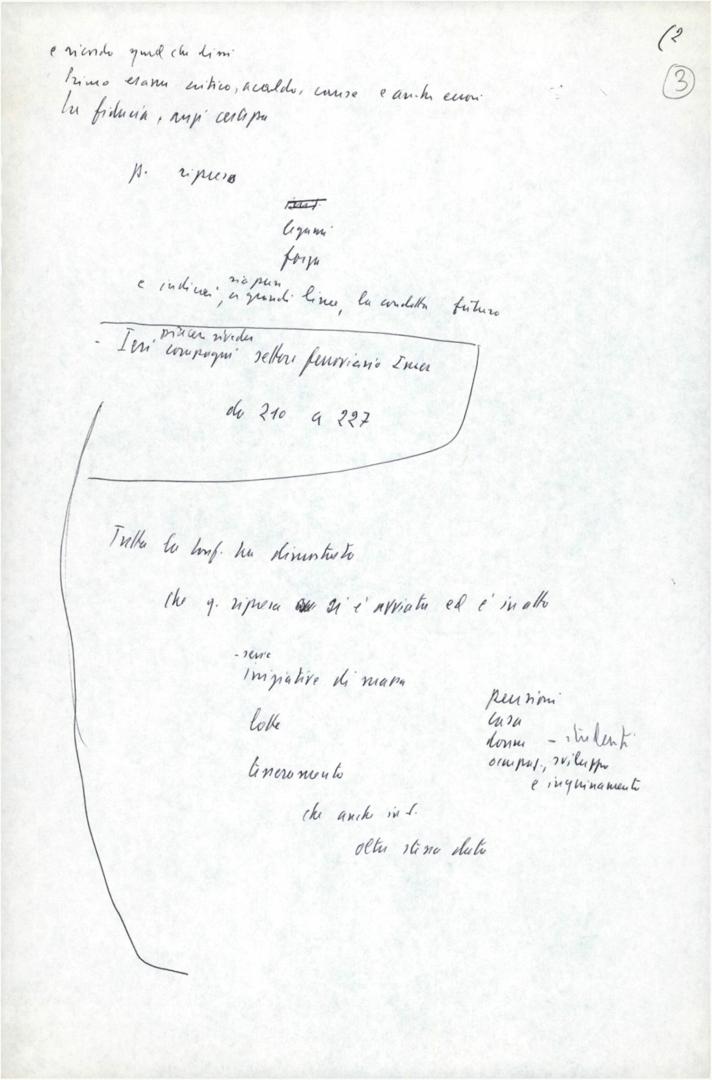 (2
3
e ricordo quel che dissi
Primo esame critico, cause e anche errori
In fiducia,
p. ripresa
legami
forza
e indicai, sia pure a grandi linee, la condotta futura
- Ieri compagni settore ferroviario
da 210 a 227
Tutta la conf. ha dimostrato
che q. ripresa si è avviata ed è in atto
- serie
iniziative di massa
lotte
tesseramento
che anche in f.
oltre stessa data
pensioni
casa
donne - studenti
occupaz., sviluppo
e inquinamento